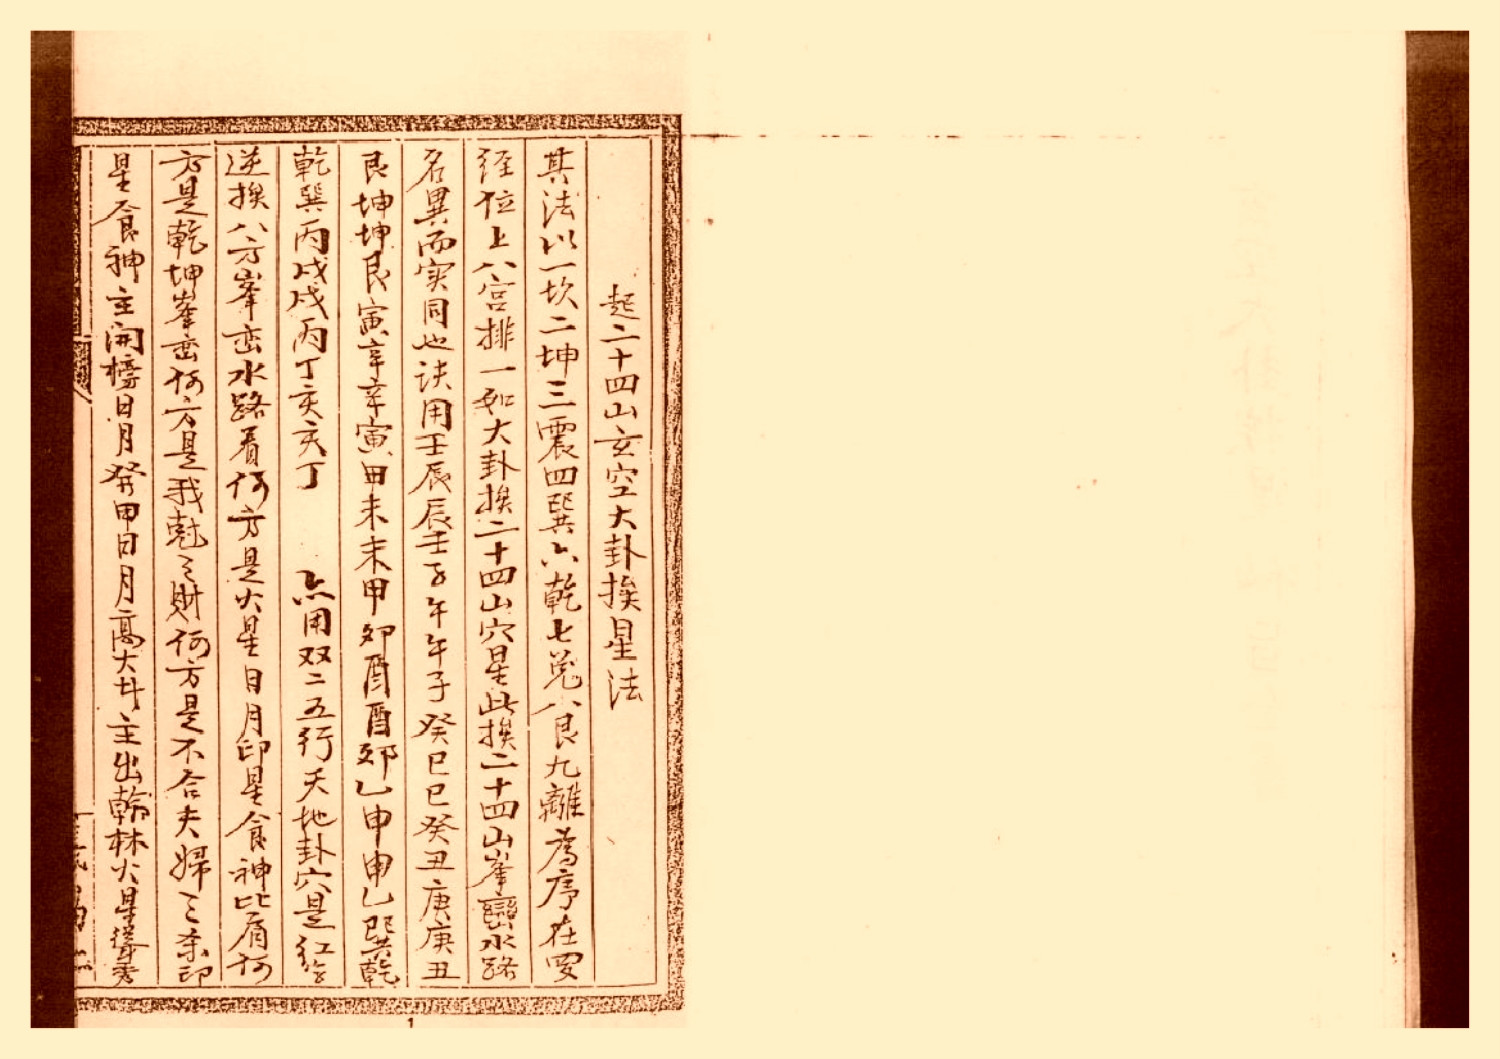 起二十四山玄空大卦挨星法
其法以一坎二坤三震四巽六乾七兑八艮九離為序在
経位上八宫排一如大卦挨二十四山穴星此挨二十四山峯巒水路
名異而实同也诀用壬辰辰壬子午午子癸巳巳癸丑庚庚丑
艮坤坤艮寅辛辛寅甲未未甲夘酉酉夘乙申申乙巽乾
乾巽丙戌戌丙丁亥亥丁 点用双二五行天地卦穴是红
逆挨八方峯峦水路看何方是火星日月印星食神比肩何
方是乾坤峯峦何方是我尅之財何方是不合夫婦之杀印
星食神主開榜日月癸甲日月高大廾主出翰林火星峯秀
1